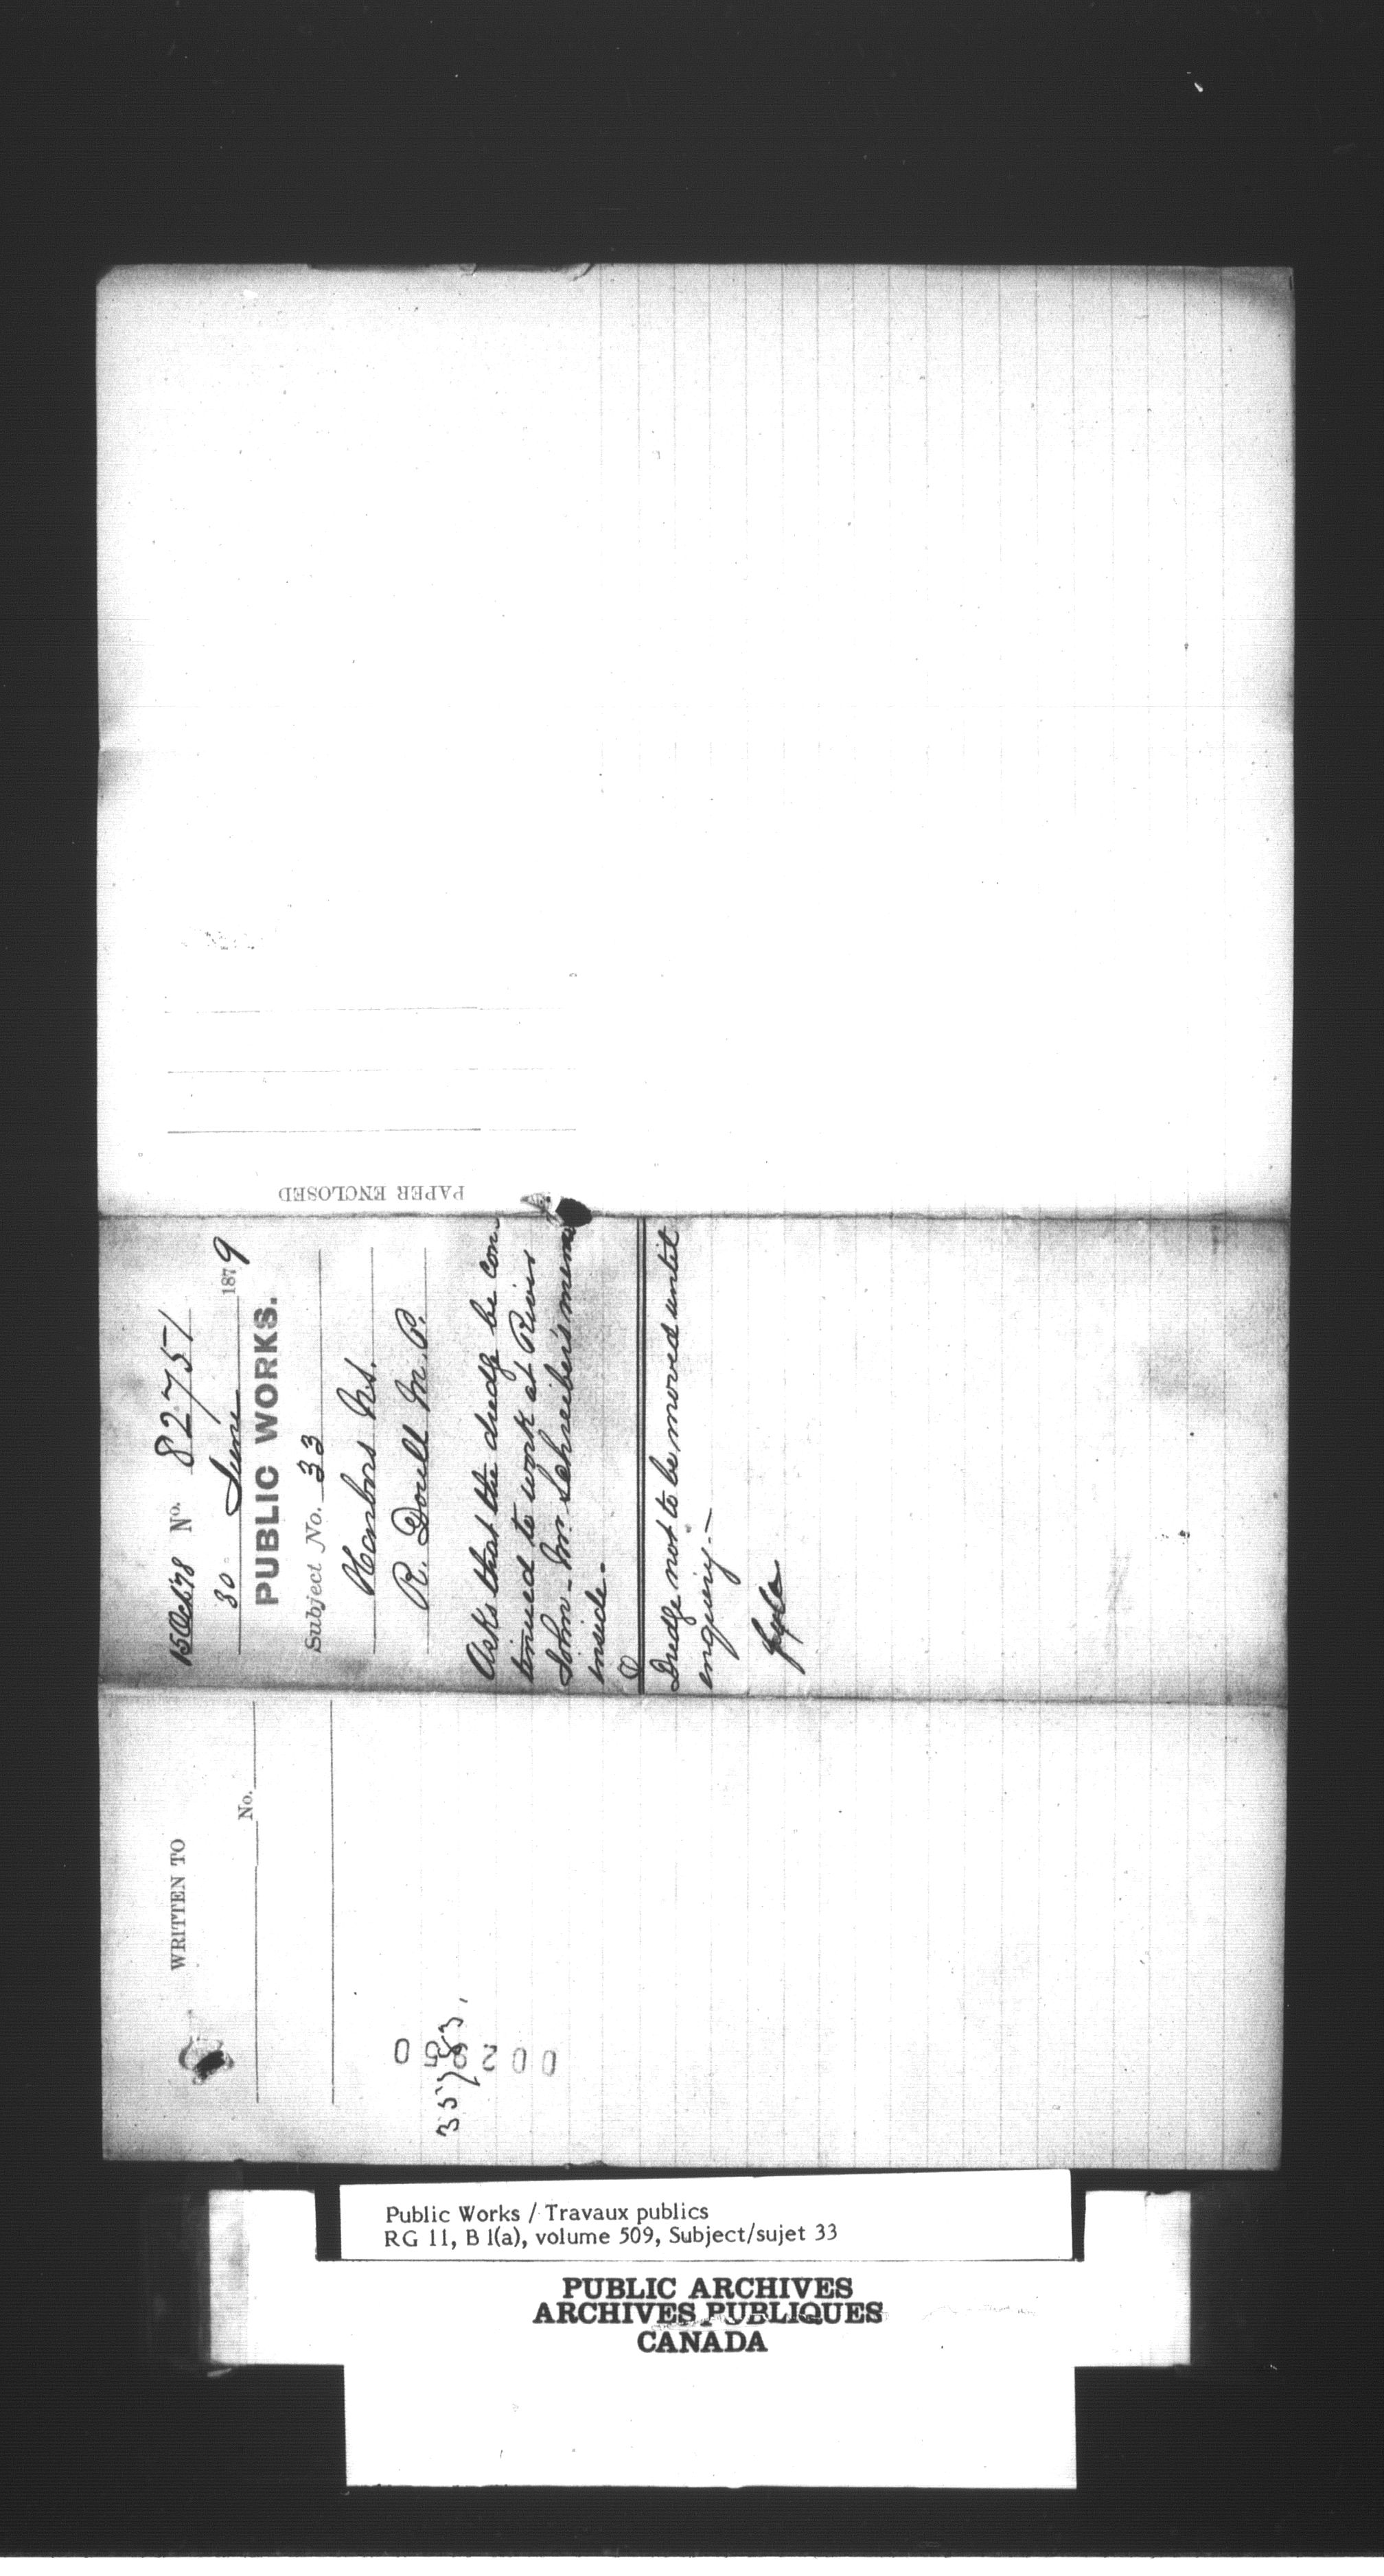 WRITTEN TO
No.
35753.
002950
15 Oct '78 No. 82751
30 June 1879
PUBLIC WORKS.
Subject No. 33
Harbors N.S.
R. Doull M.P.
Asks that the dredge be con
tinued to work at River
John - Mr Schreiber's memo
inside.
Dredge not to be moved until
enquiry.—
PAPER ENCLOSED
Public Works / Travaux publics
RG 11, B 1(a), volume 509, Subject/sujet 33
PUBLIC ARCHIVES
ARCHIVES PUBLIQUES
CANADA